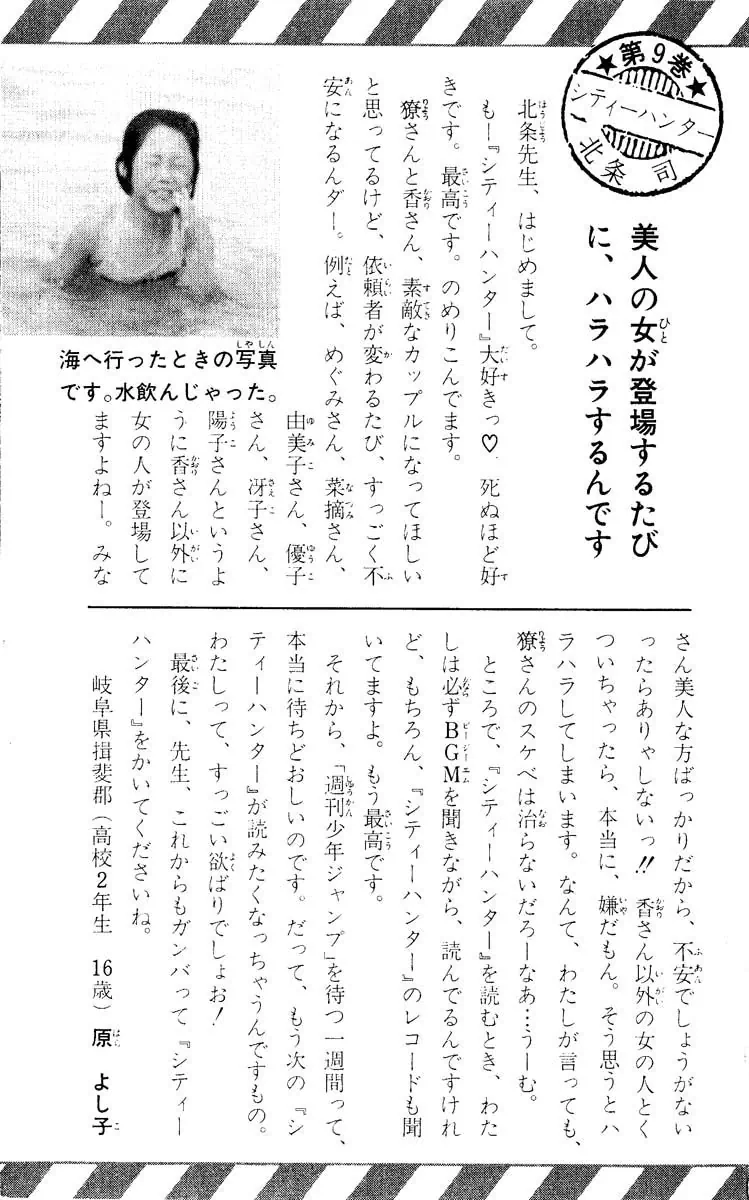 ★第9巻★
シティーハンター
北条 司
美人の女が登場するたび
に、ハラハラするんです
北条先生、はじめまして。
もー『シティーハンター』大好きっ♡ 死ぬほど好
きです。最高です。のめりこんでます。
獠さんと香さん、素敵なカップルになってほしい
と思ってるけど、依頼者が変わるたび、すっごく不
安になるんダー。例えば、めぐみさん、菜摘さん、
由美子さん、優子
さん、冴子さん、
陽子さんというよ
うに香さん以外に
女の人が登場して
ますよねー。みな
海へ行ったときの写真
です。水飲んじゃった。
さん美人な方ばっかりだから、不安でしょうがない
ったらありゃしないっ!! 香さん以外の女の人とく
ついちゃったら、本当に、嫌だもん。そう思うとハ
ラハラしてしまいます。なんて、わたしが言っても、
獠さんのスケベは治らないだろーなあ…うーむ。
ところで、『シティーハンター』を読むとき、わた
しは必ずBGMを聞きながら、読んでるんですけれ
ど、もちろん、『シティーハンター』のレコードも聞
いてますよ。もう最高です。
それから、「週刊少年ジャンプ」を待つ一週間って、
本当に待ちどおしいのです。だって、もう次の『シ
ティーハンター』が読みたくなっちゃうんですもの。
わたしって、すっごい欲ばりでしょお!
最後に、先生、これからもガンバって『シティー
ハンター』をかいてくださいね。
岐阜県揖斐郡(高校2年生 16歳) 原 よし子